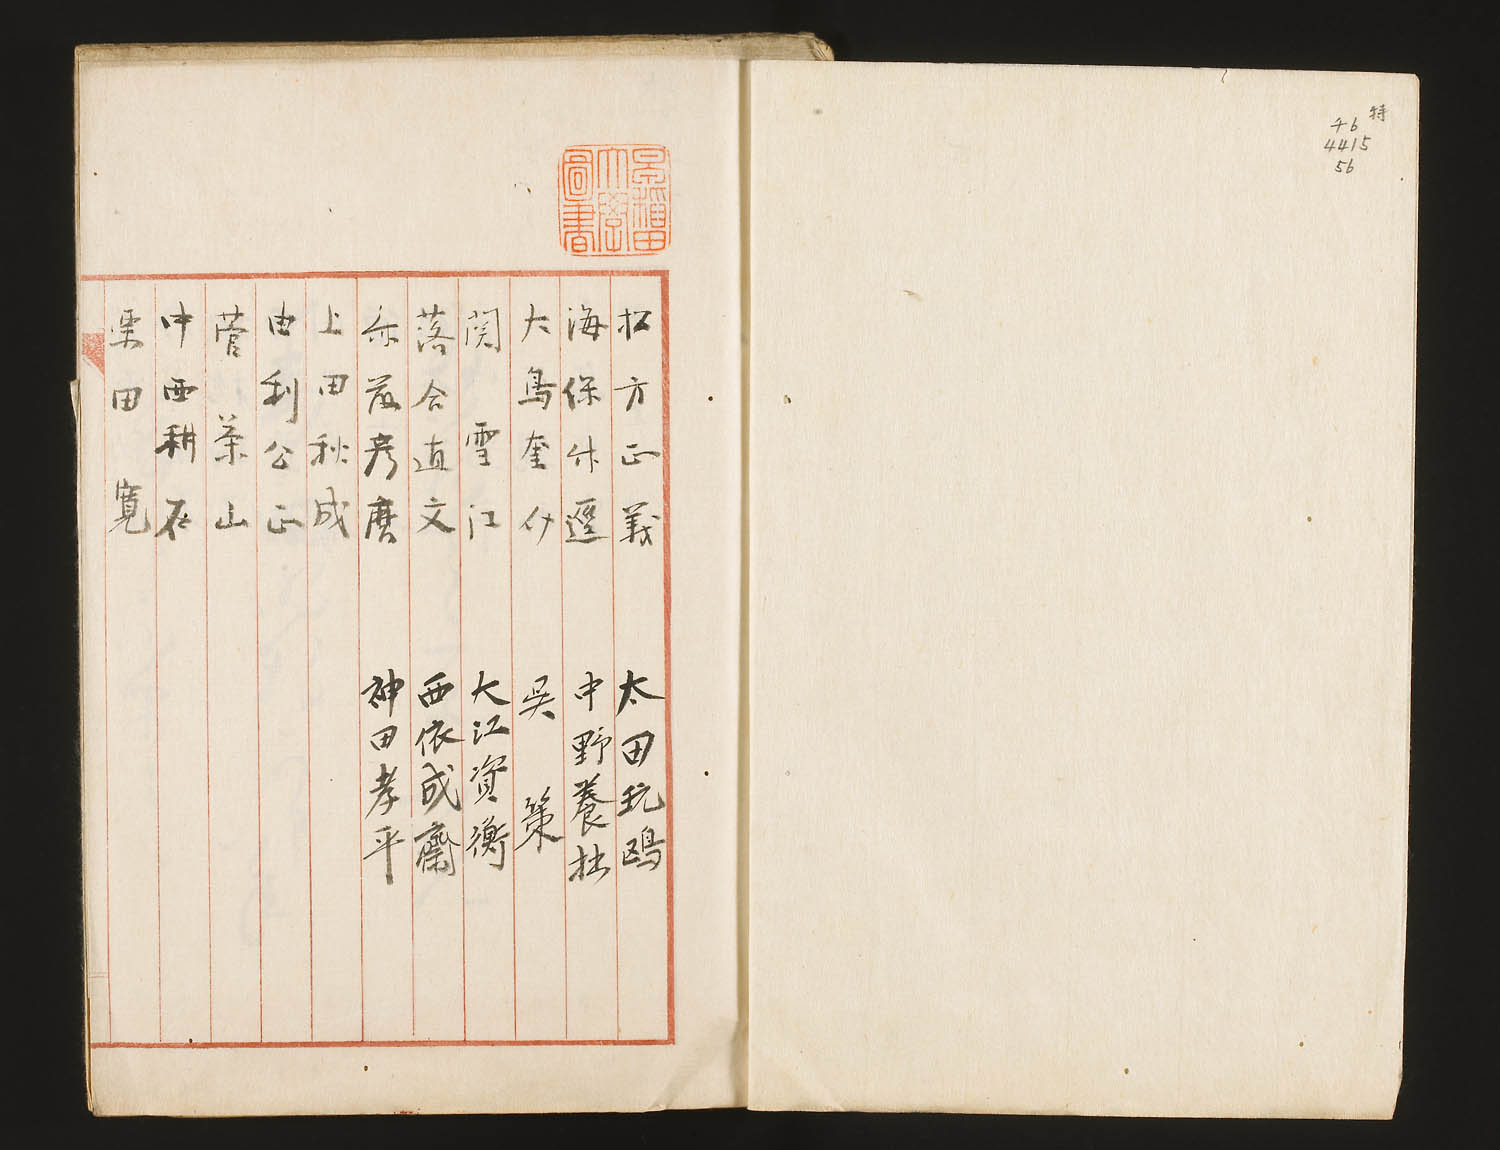 特
チ6
4415
56
早稲田
大學
圖書
松方正義
海保休遅
大鳥奎介
関雪江
落合直文
上田秋成
由利公正
菅茶山
中西耕石
栗田寛
太田玩鴎
中野養拙
吴策
大江資衡
西依成齋
神田孝平